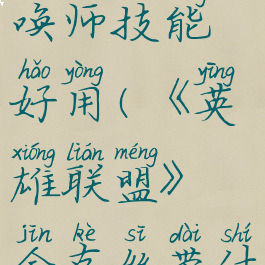 唤师技能
hǎo yòng yīng
好用(《英
xióng lián méng
雄联盟》
jīn kè sī dài shí